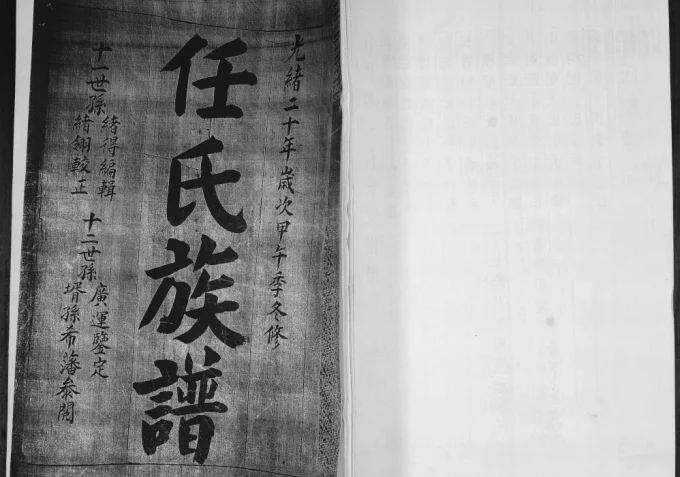 光緒二十年歲次甲午季冬修
任氏族譜
十一世孫緒得編輯
緒翎較正
十二世孫廣運鑒定
壻孫希藩參閱